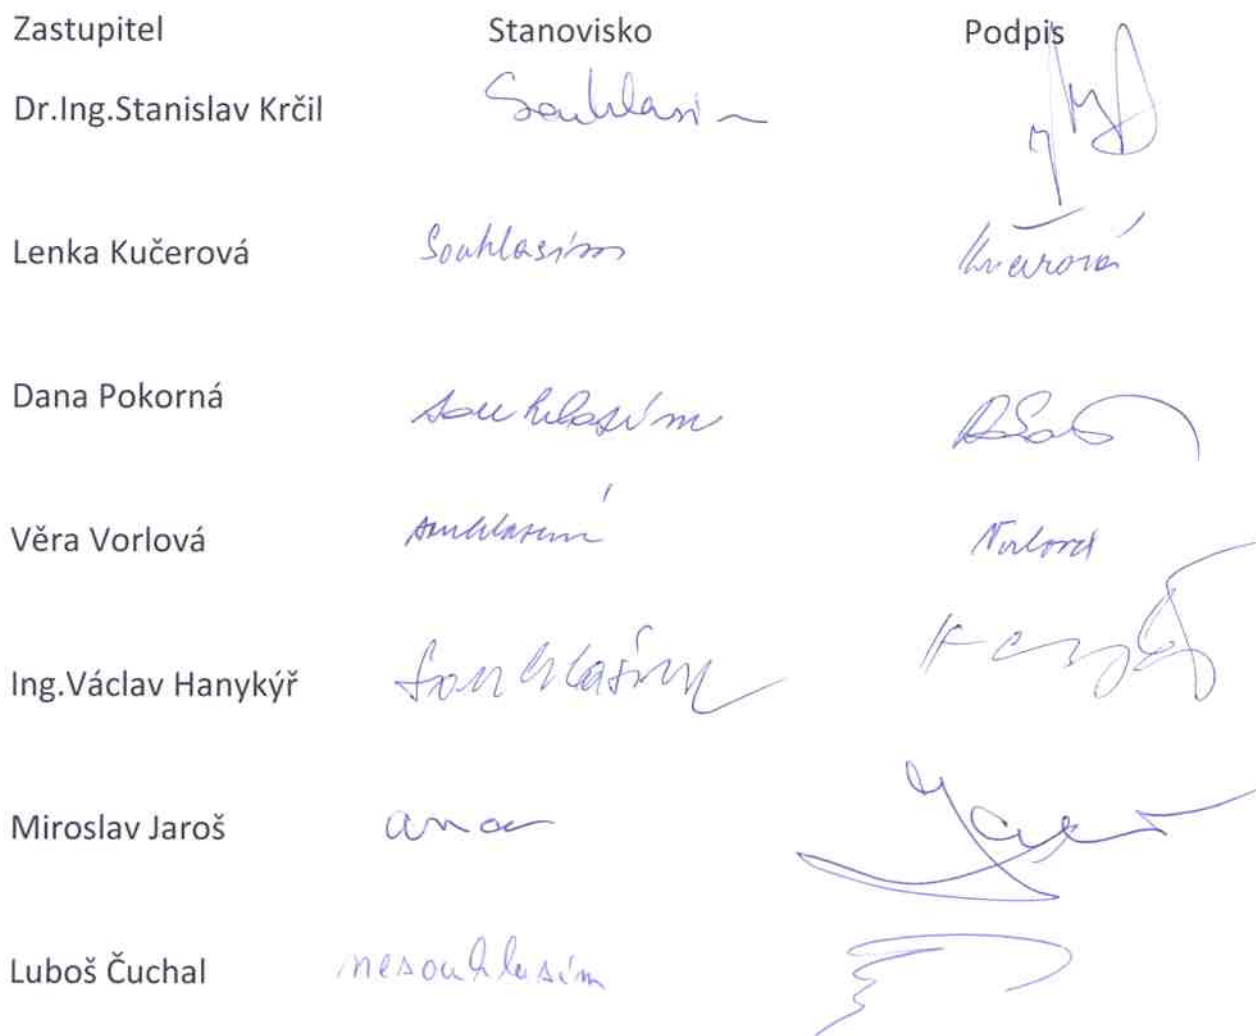 Zastupitel Stanovisko Podpis
Dr.Ing.Stanislav Krčil Souhlasím
Lenka Kučerová Souhlasím Kučerová
Dana Pokorná souhlasím
Věra Vorlová souhlasím Vorlová
Ing.Václav Hanykýř Souhlasím
Miroslav Jaroš ano
Luboš Čuchal nesouhlasím